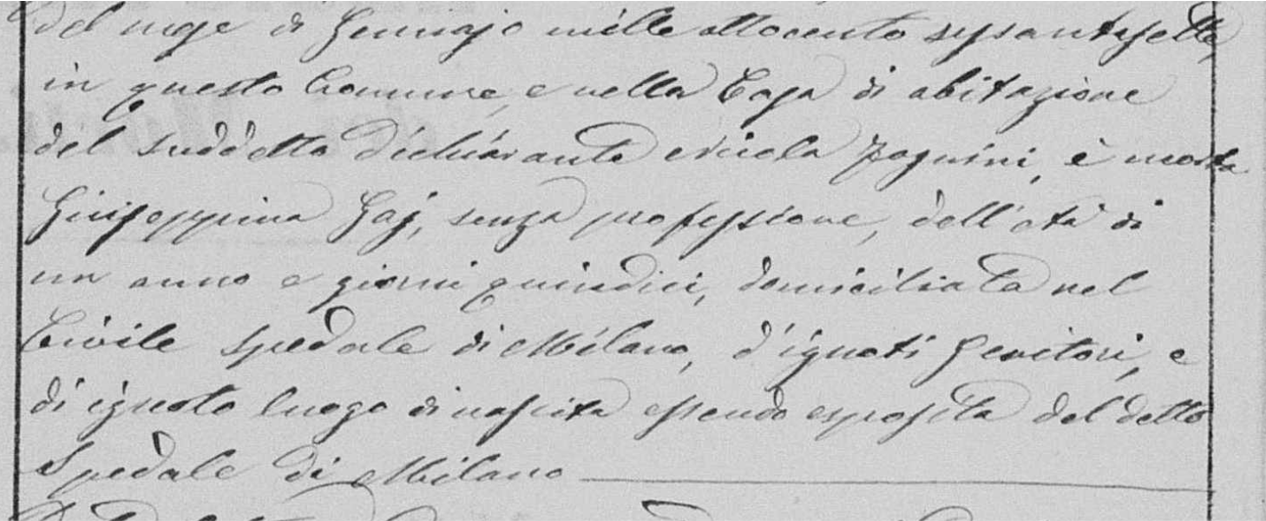 del mese di Gennajo mille ottocento sessantasette,
in questo Comune, e nella Casa di abitazione
del suddetto dichiarante Nicola Zagnini, è morta
Giuseppina Gaj, senza professione, dell'età di
un anno e giorni quindici, domiciliata nel
Civile Spedale di Milano, d'ignoti Genitori, e
di ignoto luogo di nascita essendo esposita del detto
Spedale di Milano